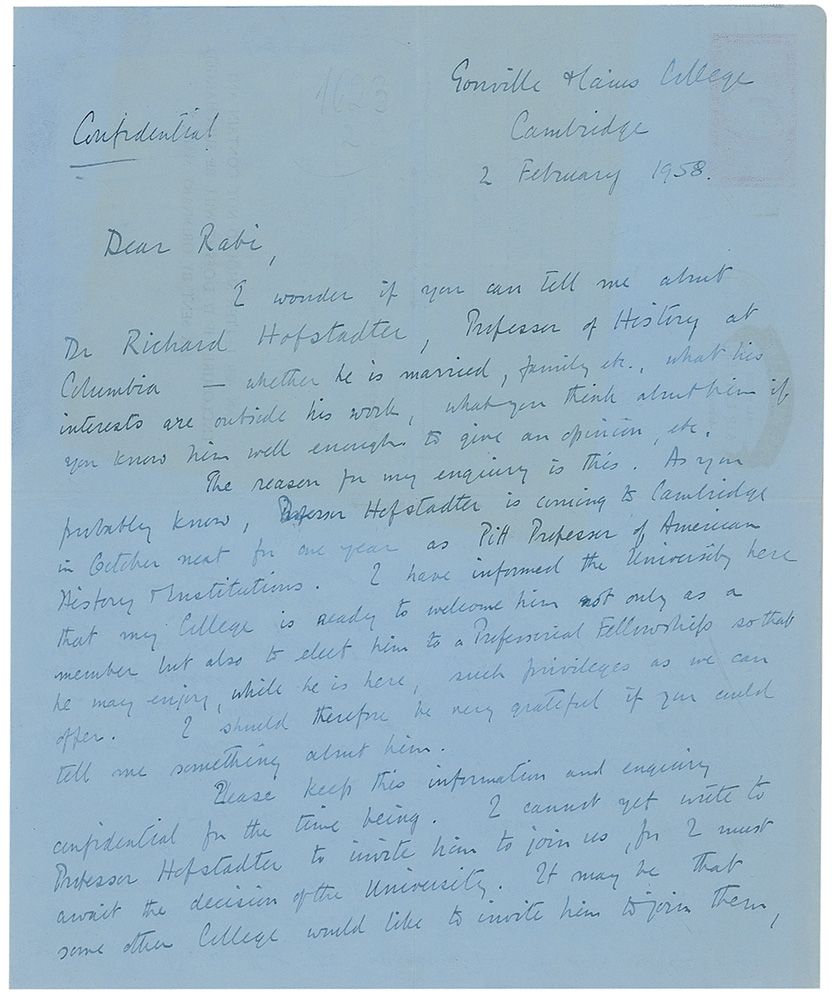 Gonville & Caius College
Confidential
Cambridge
2 February 1958.
1623
Dear Rabi,
I wonder if you can tell me about
Dr Richard Hofstadter, Professor of History at
Columbia — whether he is married, family etc., what his
interests are outside his work, what you think about him if
you know him well enough to give an opinion, etc.
The reason for my enquiry is this. As you
probably know, Professor Hofstadter is coming to Cambridge
in October next for one year as Pitt Professor of American
History & Institutions. I have informed the University here
that my College is ready to welcome him not only as a
member but also to elect him to a Professorial Fellowship so that
he may enjoy, while he is here, such privileges as we can
offer. I should therefore be very grateful if you could
tell me something about him.
Please keep this information and enquiry
confidential for the time being. I cannot yet write to
Professor Hofstadter to invite him to join us, for I must
await the decision of the University. It may be that
some other College would like to invite him to join them,